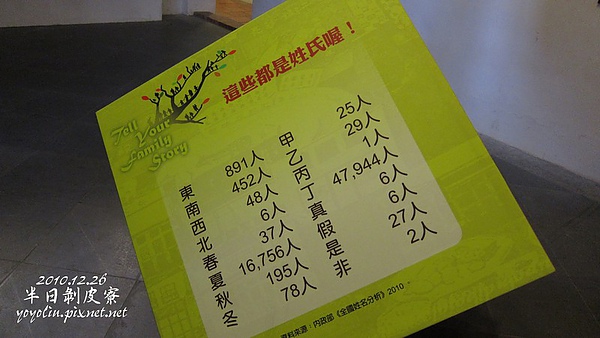 這些都是姓氏喔！
Tell
Your
Family
Story
東 891人 甲 25人
南 452人 乙 29人
西 48人 丙 1人
北 6人 丁 47,944人
春 37人 真 6人
夏 16,756人 假 6人
秋 195人 是 27人
冬 78人 非 2人
資料來源：內政部《全國姓名分析》2010。
2010.12.26
半日剝皮寮
yoyoliu.pixnet.net